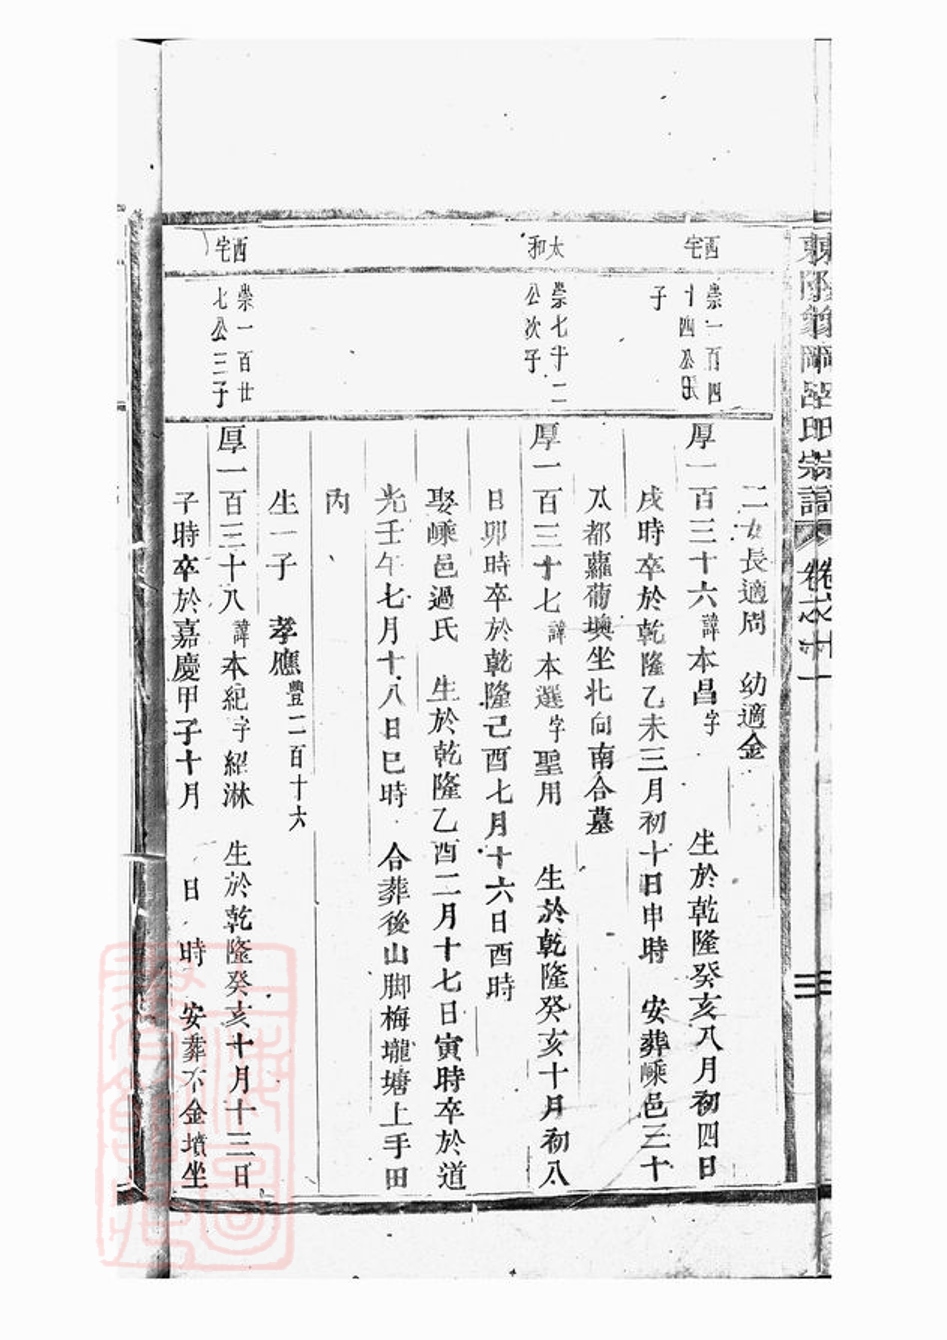 呂氏宗譜 卷之十一
三
二女長適周 幼適金
西宅
崇一百四
十四公
子
厚一百三十六諱本昌字 生於乾隆癸亥八月初四日
戌時卒於乾隆乙未三月初十日申時 安葬嵊邑三十
八都蘿蔔墺坐北向南合墓
太和
崇七十二
公次子
厚一百三十七諱本選字聖用 生於乾隆癸亥十月初八
日卯時卒於乾隆己酉七月十六日酉時
娶嵊邑過氏 生於乾隆乙酉二月十七日寅時卒於道
光壬午七月十八日巳時 合葬後山脚梅壠塘上手田
內
生一子 孝應豊二百十六
西宅
崇一百廿
七公三子
厚一百三十八諱本紀字紹淋 生於乾隆癸亥十月十三日
子時卒於嘉慶甲子十月 日 時 安葬下金墳坐